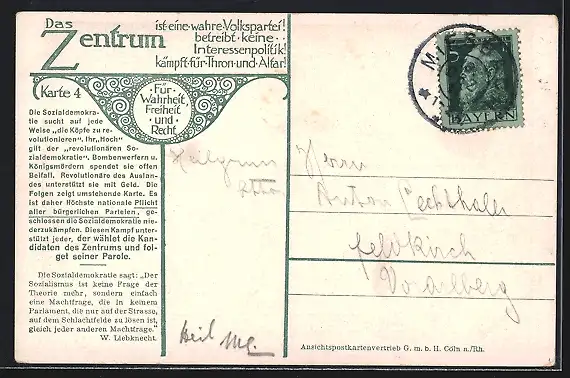 Das
Zentrum
ist·eine·wahre·Volkspartei!
betreibt·keine··
Interessenpolitik!
kämpft·für·Thron·und·Altar!
Karte 4
·Für·
Wahrheit
Freiheit
·und·
Recht
Die Sozialdemokra-
tie sucht auf jede
Weise „die Köpfe zu re-
volutionieren". Ihr „Hoch"
gilt der „revolutionären So-
zialdemokratie". Bombenwerfern u.
Königsmördern spendet sie offen
Beifall. Revolutionäre des Auslan-
des unterstützt sie mit Geld. Die
Folgen zeigt umstehende Karte. Es
ist daher Höchste nationale Pflicht
aller bürgerlichen Parteien, ge-
schlossen die Sozialdemokratie nie-
derzukämpfen. Diesen Kampf unter-
stützt jeder, der wählt die Kan-
didaten des Zentrums und fol-
get seiner Parole.
Die Sozialdemokratie sagt: „Der
Sozialismus ist keine Frage der
Theorie mehr, sondern einfach
eine Machtfrage, die in keinem
Parlament, die nur auf der Strasse,
auf dem Schlachtfelde zu lösen ist,
gleich jeder anderen Machtfrage."
W. Liebknecht.
BAYERN
Herrn
Anton
Feldkirch
Vorarlberg
Heil
Ansichtspostkartenvertrieb G. m. b. H. Cöln a./Rh.